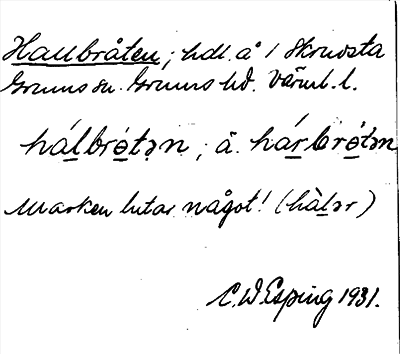 Hallbråten; hdl. å 1 Skruvsta
Grums sn. Grums hd. Värml. l.
hálbrótən, ä. hárbrótən
Marken lutar något! (hàlər)
C. W. Esping 1931.